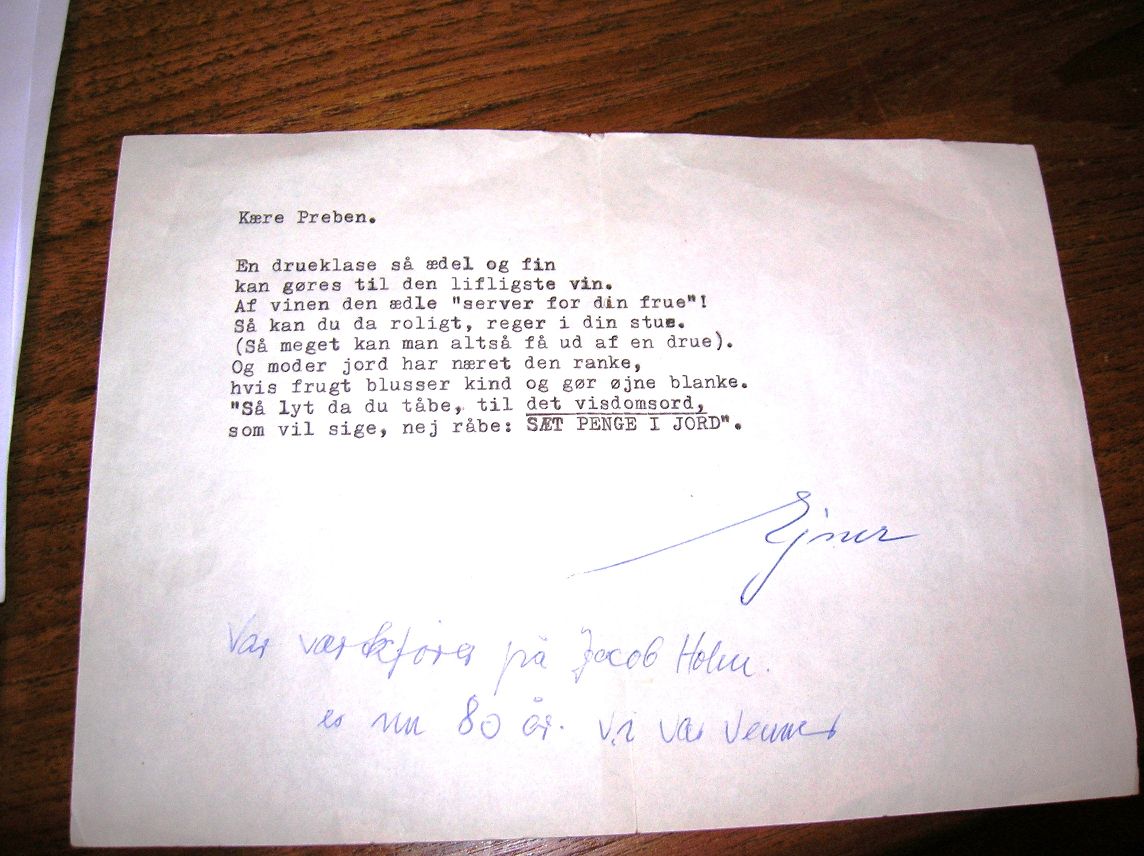 Kære Preben.
En drueklase så ædel og fin
kan gøres til den lifligste vin.
Af vinen den ædle "server for din frue"!
Så kan du da roligt, reger i din stue.
(Så meget kan man altså få ud af en drue).
Og moder jord har næret den ranke,
hvis frugt blusser kind og gør øjne blanke.
"Så lyt da du tåbe, til det visdomsord,
som vil sige, nej råbe: SÆT PENGE I JORD".
Ejner
Var værkfører på Jacob Holm.
er nu 80 år. Vi var venner